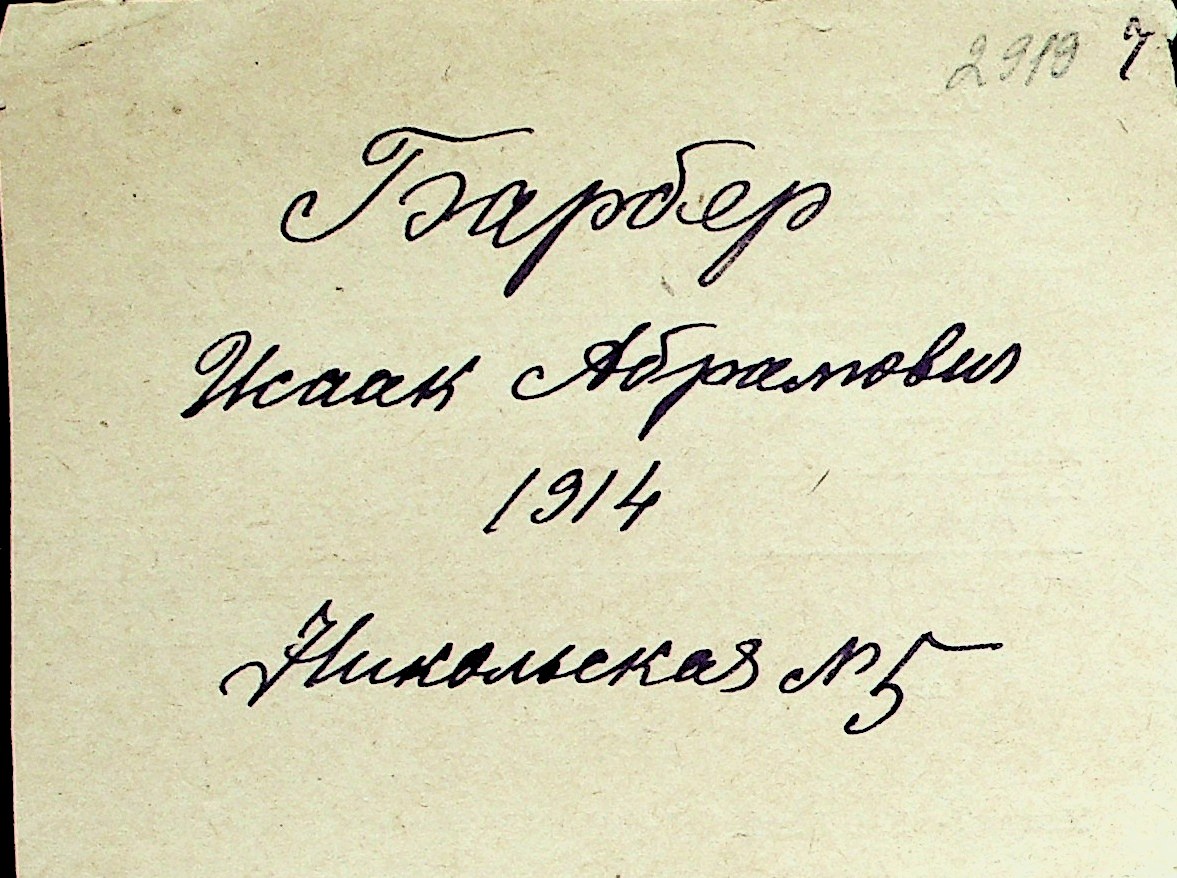 2919 7
Гзарбер
Исаак Абрамович
1914
Никольская № 5